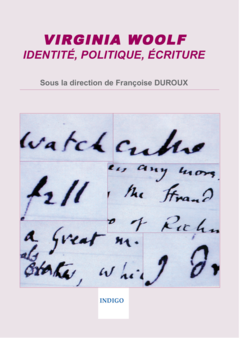 VIRGINIA WOOLF
IDENTITÉ, POLITIQUE, ÉCRITURE
Sous la direction de Françoise DUROUX
watch
any more
fell
the Strand
of Rich
a great m.
whic
INDIGO